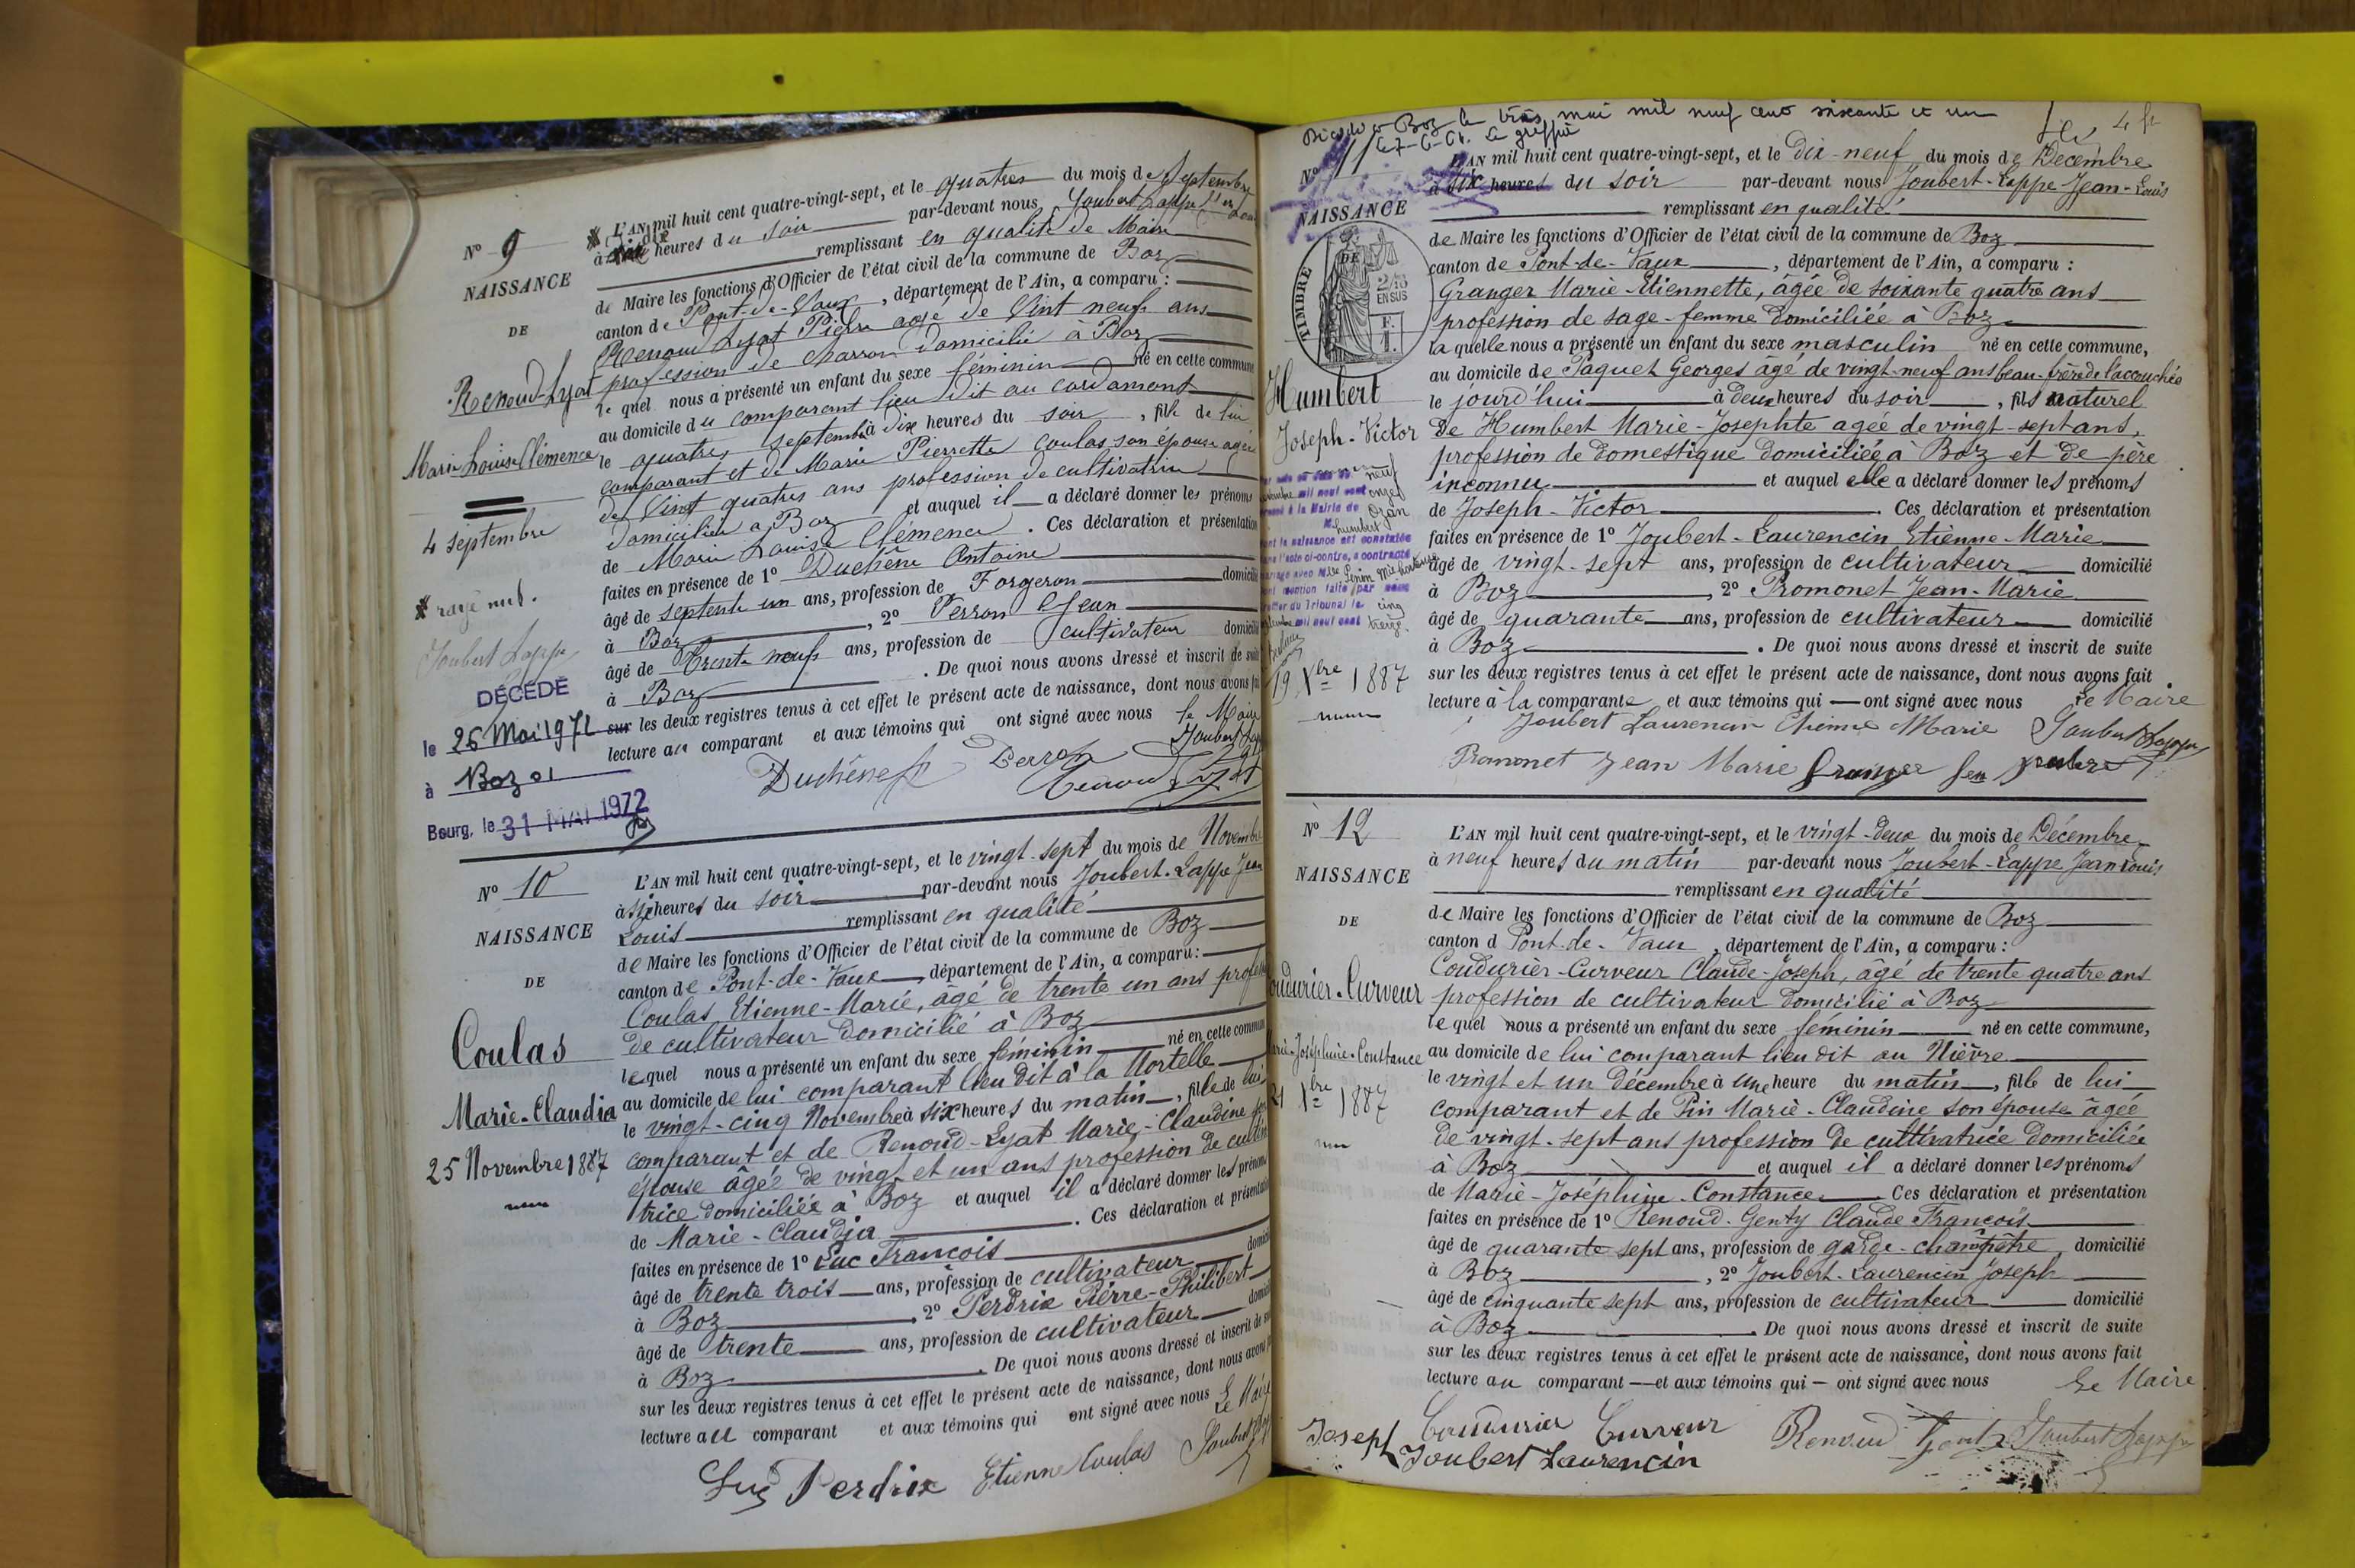 N° 9
NAISSANCE
DE
Renoud-Lyat
Marie Louise Clémence
4 septembre
rayé nul.
Joubert Lappe
DÉCÉDÉ
le 26 Mai 1972
à Boz 01
Bourg, le 31 MAI 1972
L'AN mil huit cent quatre-vingt-sept, et le quatres du mois de Septembre
à dix heures du soir par-devant nous Joubert Lappe
remplissant en qualité de Maire
de Maire les fonctions d'Officier de l'état civil de la commune de Boz
canton de Pont-de-Vaux, département de l'Ain, a comparu :
Renoud Lyat Pierre agé de Vint neufs ans
profession de charron domicilié à Boz
le quel nous a présenté un enfant du sexe féminin né en cette commune
au domicile du comparant lieu dit au cardamont
le quatres septembre à dix heures du soir, fille de lui
comparant et de Marie Pierrette Coulas son épouse agée
de Vint quatres ans profession de cultivatrice
domiciliée a Boz et auquel il a déclaré donner les prénoms
de Marie Louise Clémence. Ces déclaration et présentation
faites en présence de 1° Duchêne Antoine
âgé de septente un ans, profession de Forgeron domicilié
à Boz, 2° Perron Jean
âgé de Trente neufs ans, profession de cultivateur domicilié
à Boz. De quoi nous avons dressé et inscrit de suite
sur les deux registres tenus à cet effet le présent acte de naissance, dont nous avons fait
lecture au comparant et aux témoins qui ont signé avec nous le Maire
Duchêne Perron Renoud Lyat Joubert Lappe
N° 10
NAISSANCE
DE
Coulas
Marie-Claudia
25 Novembre 1887
L'AN mil huit cent quatre-vingt-sept, et le vingt-sept du mois de Novembre
à six heures du soir par-devant nous Joubert-Lappe Jean
Louis remplissant en qualité
de Maire les fonctions d'Officier de l'état civil de la commune de Boz
canton de Pont-de-Vaux, département de l'Ain, a comparu :
Coulas Etienne-Marie, âgé de trente un ans profession
de cultivateur domicilié à Boz
lequel nous a présenté un enfant du sexe féminin né en cette commune
au domicile de lui comparant lieu dit à la Mortelle
le vingt-cinq Novembre à six heures du matin, fille de lui
comparant et de Renoud-Lyat Marie-Claudine son
épouse âgée de vingt et un ans profession de cultiva
trice domiciliée à Boz et auquel il a déclaré donner les prénoms
de Marie-Claudia. Ces déclaration et présentation
faites en présence de 1° Luc François
âgé de trente trois ans, profession de cultivateur domicilié
à Boz, 2° Perdrix Pierre-Philibert
âgé de trente ans, profession de cultivateur domicilié
à Boz. De quoi nous avons dressé et inscrit de suite
sur les deux registres tenus à cet effet le présent acte de naissance, dont nous avons fait
lecture au comparant et aux témoins qui ont signé avec nous Le Maire
Luc Perdrix Etienne Coulas Joubert Lappe
Décédé à Boz le trois mai mil neuf cent soixante et un
Le greffier
N° 11
NAISSANCE
DE
TIMBRE
2/10
EN SUS
Humbert
Joseph-Victor
neuf
mil neuf cent onze
à la Mairie de Ozan
M. Humbert
dont la naissance est constatée
dans l'acte ci-contre, a contracté
mariage avec Mlle
mention faite par
greffier du Tribunal le cinq
mil neuf cent treize
19 Xbre 1887
L'AN mil huit cent quatre-vingt-sept, et le dix-neuf du mois de Décembre
à six heures du soir par-devant nous Joubert-Lappe Jean-Louis
remplissant en qualité
de Maire les fonctions d'Officier de l'état civil de la commune de Boz
canton de Pont-de-Vaux, département de l'Ain, a comparu :
Granger Marie-Etiennette, âgée de soixante quatre ans
profession de sage-femme domiciliée à Boz
laquelle nous a présenté un enfant du sexe masculin né en cette commune,
au domicile de Paquet Georges âgé de vingt-neuf ans beau-frère de l'accouchée
le jourd'hui à deux heures du soir, fils naturel
de Humbert Marie-Josephte agée de vingt-sept ans,
profession de domestique domiciliée à Boz et de père
inconnu et auquel elle a déclaré donner les prénoms
de Joseph-Victor. Ces déclaration et présentation
faites en présence de 1° Joubert-Laurencin Etienne-Marie
âgé de vingt-sept ans, profession de cultivateur domicilié
à Boz, 2° Promonet Jean-Marie
âgé de quarante ans, profession de cultivateur domicilié
à Boz. De quoi nous avons dressé et inscrit de suite
sur les deux registres tenus à cet effet le présent acte de naissance, dont nous avons fait
lecture à la comparante et aux témoins qui ont signé avec nous Le Maire
Joubert Laurencin Etienne Marie Joubert Lappe
Promonet Jean Marie
N° 12
NAISSANCE
DE
Coudurier-Curveur
Marie-Joséphine-Constance
21 Xbre 1887
L'AN mil huit cent quatre-vingt-sept, et le vingt-deux du mois de Décembre
à neuf heures du matin par-devant nous Joubert-Lappe Jean Louis
remplissant en qualité
de Maire les fonctions d'Officier de l'état civil de la commune de Boz
canton d Pont-de-Vaux, département de l'Ain, a comparu :
Coudurier-Curveur Claude-Joseph, âgé de trente quatre ans
profession de cultivateur domicilié à Boz
lequel nous a présenté un enfant du sexe féminin né en cette commune,
au domicile de lui comparant lieu dit au Nièvre
le vingt et un décembre à une heure du matin, fille de lui
comparant et de Pin Marie-Claudine son épouse âgée
de vingt-sept ans profession de cultivatrice domiciliée
à Boz et auquel il a déclaré donner les prénoms
de Marie-Joséphine-Constance. Ces déclaration et présentation
faites en présence de 1° Renoud-Genty Claude François
âgé de quarante sept ans, profession de garde-champêtre domicilié
à Boz, 2° Joubert-Laurencin Joseph
âgé de cinquante sept ans, profession de cultivateur domicilié
à Boz. De quoi nous avons dressé et inscrit de suite
sur les deux registres tenus à cet effet le présent acte de naissance, dont nous avons fait
lecture au comparant et aux témoins qui ont signé avec nous Le Maire
Coudurier Curveur Renoud Genty Joubert Lappe
Joseph Joubert Laurencin